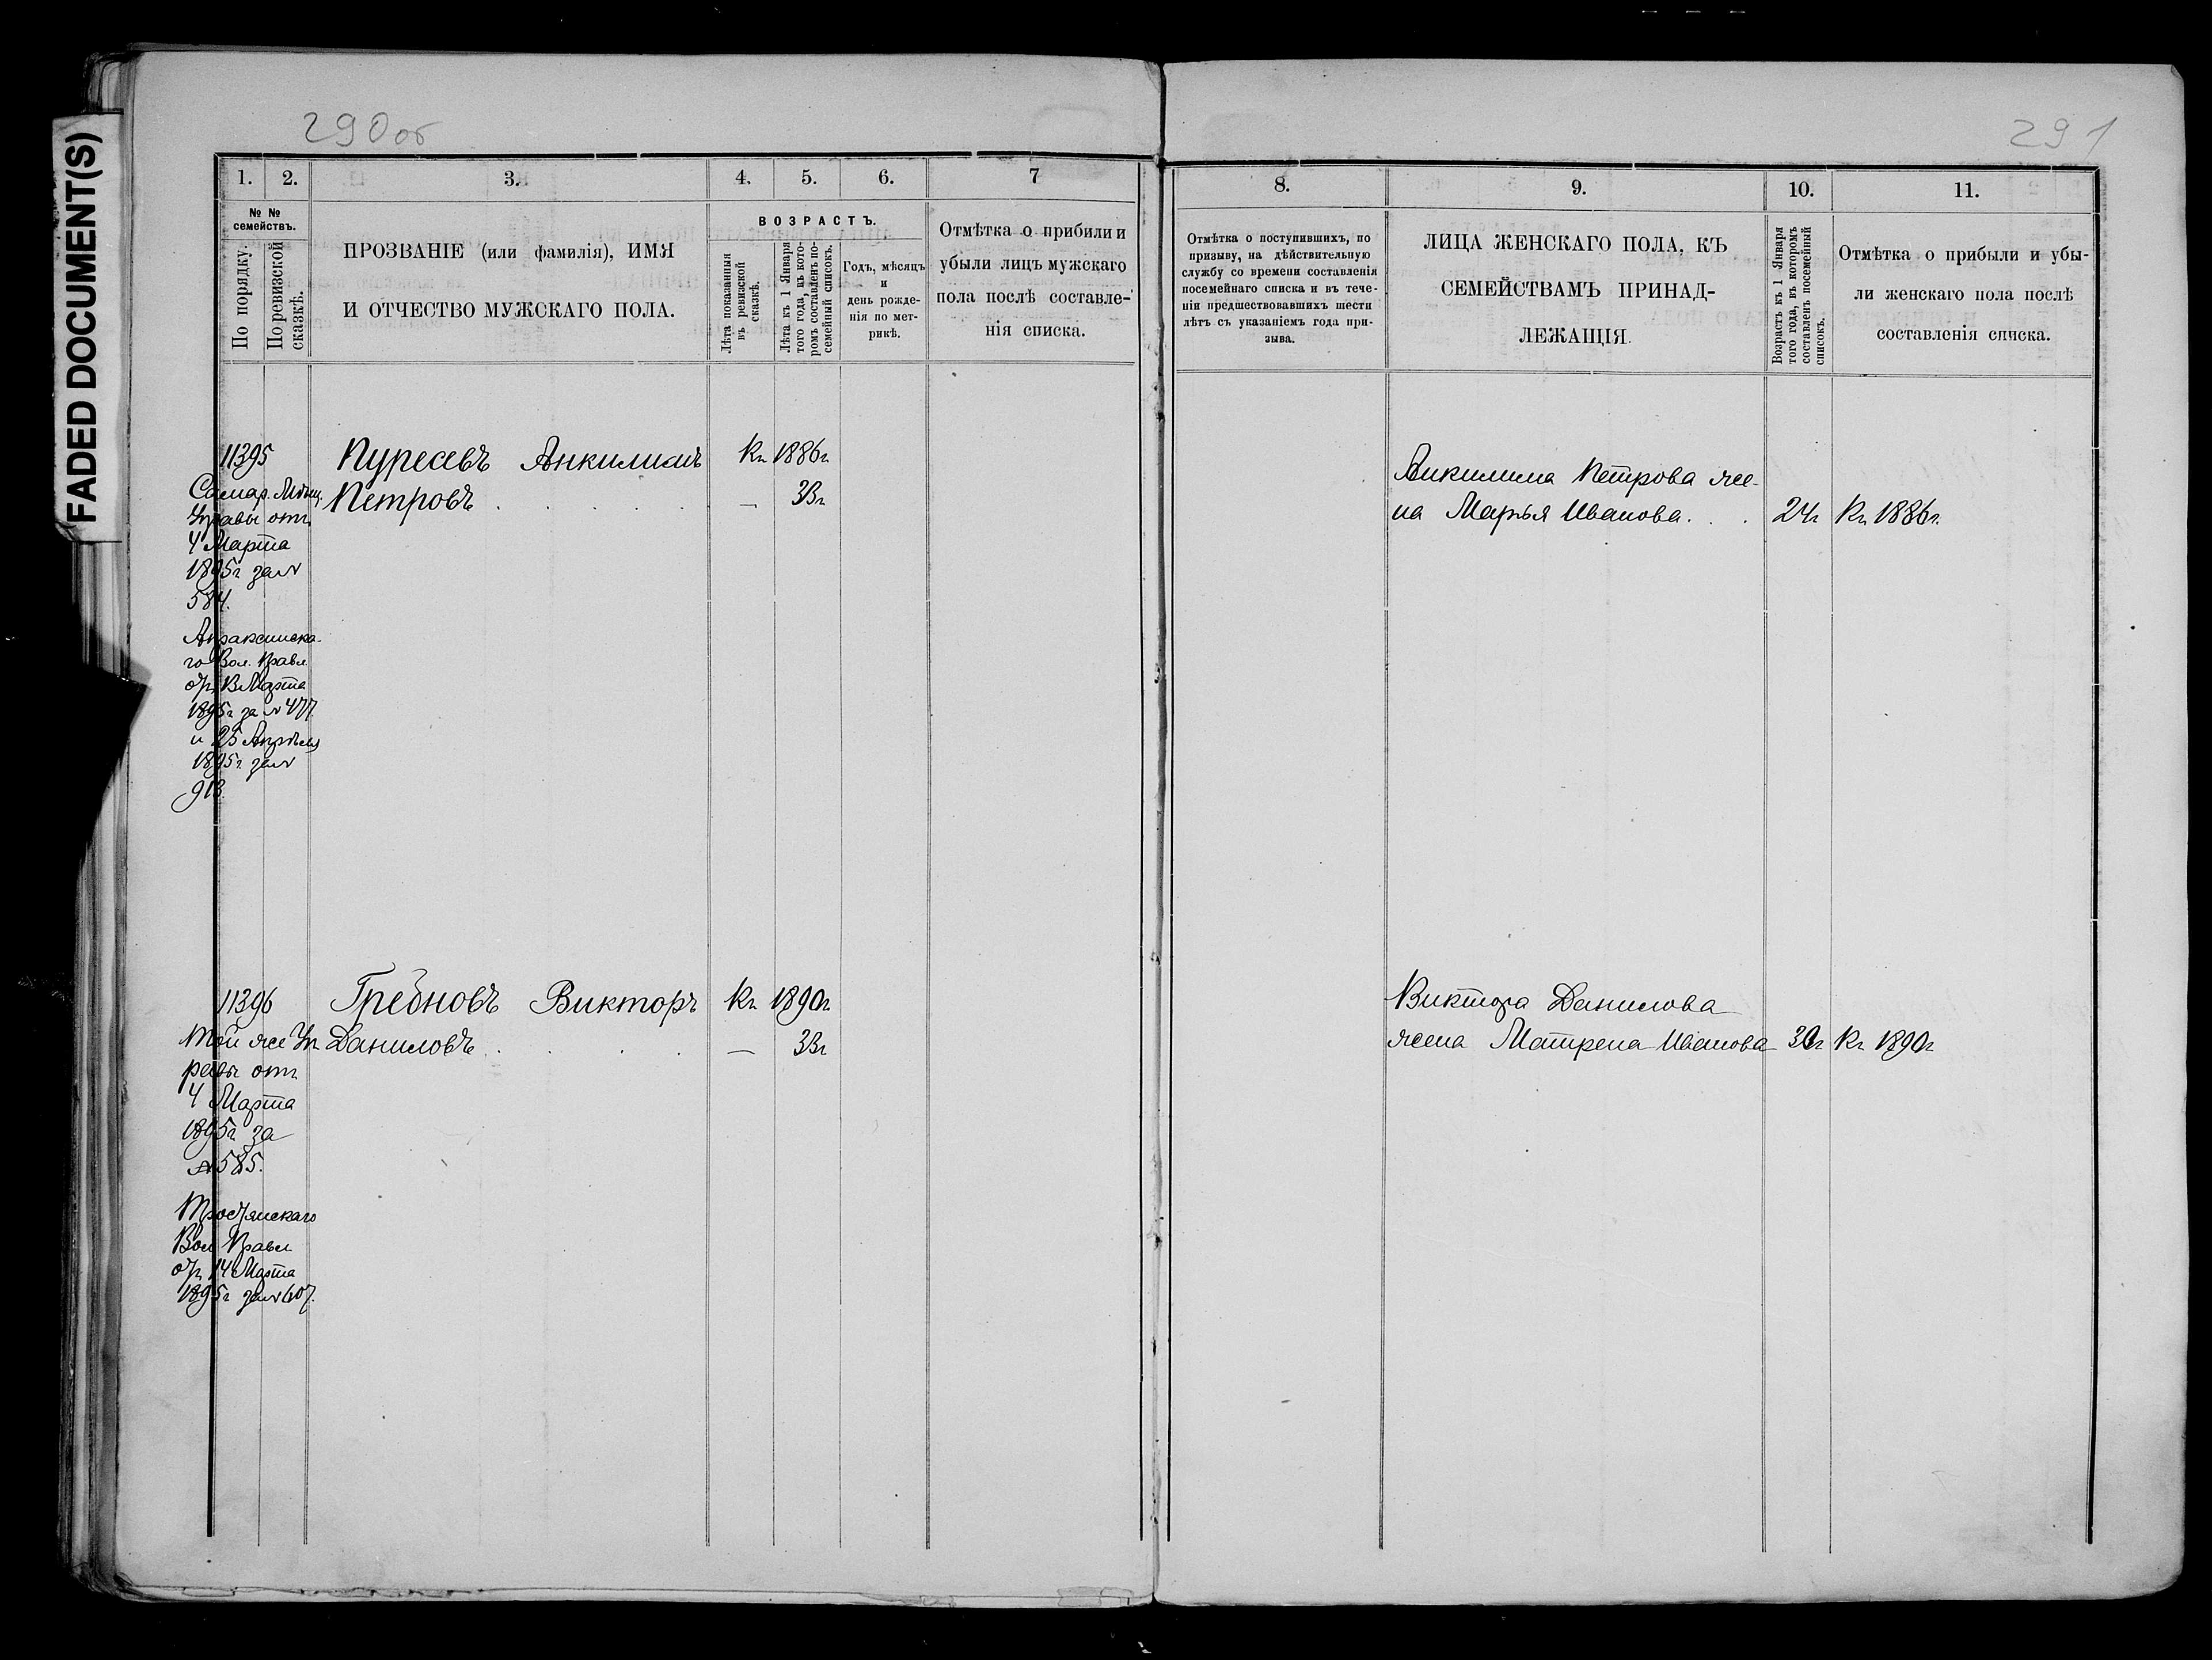 FADED DOCUMENT(S)
290об
1. 2. 3. 4. 5. 6. 7
№ № семействъ.
По порядку.
По ревизской сказкѣ.
ПРОЗВАНІЕ (или фамилія), ИМЯ
И ОТЧЕСТВО МУЖСКАГО ПОЛА.
ВОЗРАСТЪ.
Лѣта показанныя
въ ревизской
сказкѣ.
Лѣта къ 1 Января
того года, въ кото-
ромъ составленъ по-
семейный списокъ.
Годъ, мѣсяцъ
и
день рожде-
нія по мет-
рикѣ.
Отмѣтка о прибили и
убыли лицъ мужскаго
пола послѣ составле-
нія списка.
11395 Пуресевъ Анкилинъ Къ 1886г.
Петровъ . . . . . — 33г
Самар. Мѣщ.
Управы отъ
4 Марта
1895г за №
584.
Апраксинска-
го Вол. Правл.
отъ 13 Марта
1895г за № 477
и 25 Апрѣля
1895г за №
918.
11396 Гребновъ Викторъ Къ 1890г.
Даниловъ . . . . — 33г
Той же Уп
равы отъ
4 Марта
1895г за
№ 585.
Тростянскаго
Вол Правл
отъ 14 Марта
1895г за № 607.
291
8. 9. 10. 11.
Отмѣтка о поступившихъ, по
призыву, на дѣйствительную
службу со времени составленія
посемейнаго списка и въ тече-
ніи предшествовавшихъ шести
лѣтъ съ указаніемъ года при-
зыва.
ЛИЦА ЖЕНСКАГО ПОЛА, КЪ
СЕМЕЙСТВАМЪ ПРИНАД-
ЛЕЖАЩІЯ.
Возрастъ къ 1 Января
того года, въ которомъ
составленъ посемейный
списокъ.
Отмѣтка о прибыли и убы-
ли женскаго пола послѣ
составленія списка.
Анкилина Петрова же-
на Марья Иванова . . . 24г Къ 1886г.
Виктора Данилова
жена Матрена Иванова 30г Къ 1890г